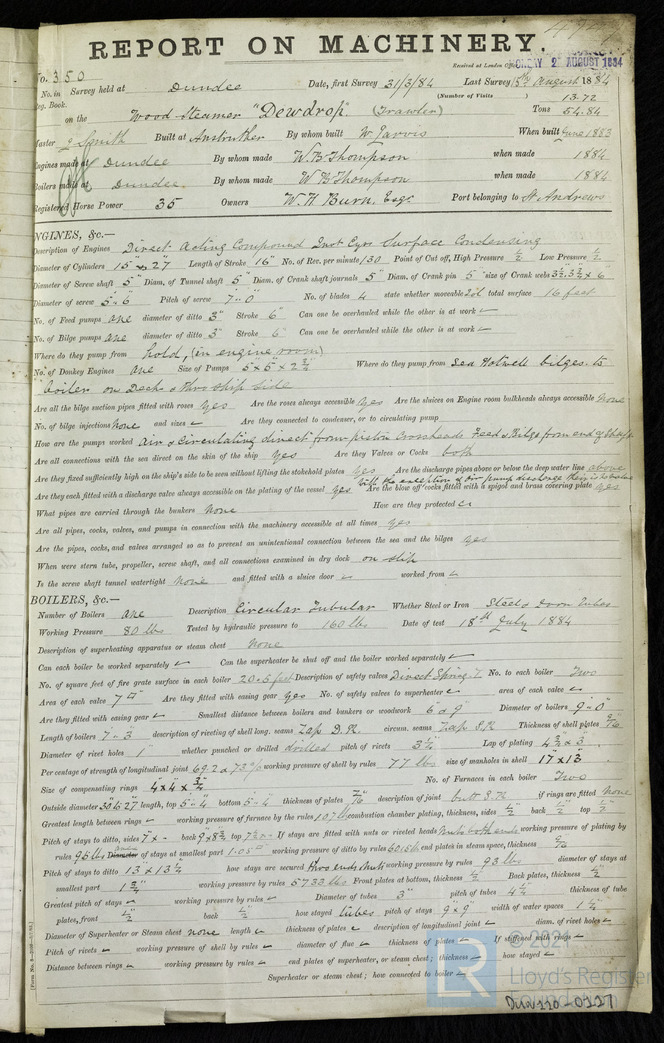 REPORT ON MACHINERY.
Received at London Office
2 AUGUST 1884
No. 350
No. in Reg. Book. Survey held at Dundee Date, first Survey 31/3/84 Last Survey August 1884
(Number of Visits )
on the Wood Steamer "Dewdrop" (Trawler) Tons 13.72 54.84
Master J Smith Built at Anstruther By whom built W. Jarvis When built June 1883
Engines made at Dundee By whom made W. B. Thompson when made 1884
Boilers made at Dundee By whom made W. B. Thompson when made 1884
Registered Horse Power 35 Owners W. H. Burn, Esqr. Port belonging to St Andrews
ENGINES, &c.—
Description of Engines Direct Acting Compound Inv Cyrs Surface Condensing
Diameter of Cylinders 15" & 27 Length of Stroke 16" No. of Rev. per minute 130 Point of Cut off, High Pressure 1/2 Low Pressure 1/2
Diameter of Screw shaft 5" Diam. of Tunnel shaft 5" Diam. of Crank shaft journals 5" Diam. of Crank pin 5" size of Crank webs 3 1/2. 3 3/4 x 6
Diameter of screw 5-6 Pitch of screw 7-0" No. of blades 4 state whether moveable total surface 16 feet
No. of Feed pumps one diameter of ditto 3" Stroke 6" Can one be overhauled while the other is at work
No. of Bilge pumps one diameter of ditto 3" Stroke 6" Can one be overhauled while the other is at work
Where do they pump from hold, (in engine room)
No. of Donkey Engines one Size of Pumps Where do they pump from Sea Hotwell bilges to
boiler on Deck & thro ship side
Are all the bilge suction pipes fitted with roses yes Are the roses always accessible yes Are the sluices on Engine room bulkheads always accessible none
No. of bilge injections None and sizes Are they connected to condenser, or to circulating pump
How are the pumps worked Air & Circulating direct from piston crossheads Feed & Bilge from end of Shaft
Are all connections with the sea direct on the skin of the ship yes Are they Valves or Cocks both
Are they fixed sufficiently high on the ship's side to be seen without lifting the stokehold plates yes Are the discharge pipes above or below the deep water line above
with the exception of air pump discharge
Are they each fitted with a discharge valve always accessible on the plating of the vessel yes Are the blow off cocks fitted with a spigot and brass covering plate yes
What pipes are carried through the bunkers None How are they protected
Are all pipes, cocks, valves, and pumps in connection with the machinery accessible at all times yes
Are the pipes, cocks, and valves arranged so as to prevent an unintentional connection between the sea and the bilges yes
When were stern tube, propeller, screw shaft, and all connections examined in dry dock on slip
Is the screw shaft tunnel watertight none and fitted with a sluice door worked from
BOILERS, &c.—
Number of Boilers one Description Circular Tubular Whether Steel or Iron Steel & Iron Tubes
Working Pressure 80 lbs Tested by hydraulic pressure to 160 lbs Date of test 18th July 1884
Description of superheating apparatus or steam chest None
Can each boiler be worked separately Can the superheater be shut off and the boiler worked separately
No. of square feet of fire grate surface in each boiler 20.5 feet Description of safety valves Direct Spring No. to each boiler Two
Area of each valve 7 Are they fitted with easing gear yes No. of safety valves to superheater area of each valve
Are they fitted with easing gear Smallest distance between boilers and bunkers or woodwork Diameter of boilers 9-0"
Length of boilers 7-3 description of riveting of shell long. seams Lap D.R. circum. seams Lap S.R. Thickness of shell plates 9/16
Diameter of rivet holes 1" whether punched or drilled drilled pitch of rivets 3 1/4 Lap of plating
Per centage of strength of longitudinal joint 69.2 working pressure of shell by rules 77 lbs size of manholes in shell 17" x 13
Size of compensating rings 4" x 4" x 3/4 No. of Furnaces in each boiler Two
Outside diameter length, top 5-4 bottom 5-4 thickness of plates 7/16 description of joint butt S.R. if rings are fitted None
Greatest length between rings working pressure of furnace by the rules 107 lbs combustion chamber plating, thickness, sides 1/2 back 1/2 top 1/2
Pitch of stays to ditto, sides back top If stays are fitted with nuts or riveted heads Nuts both ends working pressure of plating by
rules 95 lbs Diameter of stays at smallest part 1.05 working pressure of ditto by rules end plates in steam space, thickness 9/16
Pitch of stays to ditto 13" x 13 1/4 how stays are secured thro ends, Nuts working pressure by rules 93 lbs diameter of stays at
smallest part working pressure by rules Front plates at bottom, thickness 1/2 Back plates, thickness 1/2
Greatest pitch of stays working pressure by rules Diameter of tubes 3" pitch of tubes 4 1/4 thickness of tube
plates, front 1/2 back 1/2 how stayed tubes pitch of stays 9" x 9" width of water spaces 1 1/4
Diameter of Superheater or Steam chest none length thickness of plates description of longitudinal joint diam. of rivet holes
Pitch of rivets working pressure of shell by rules diameter of flue thickness of plates If stiffened with rings
Distance between rings working pressure by rules end plates of superheater, or steam chest; thickness how stayed
Superheater or steam chest; how connected to boiler
© 2021
LR
Lloyd's Register
DUN220-0127